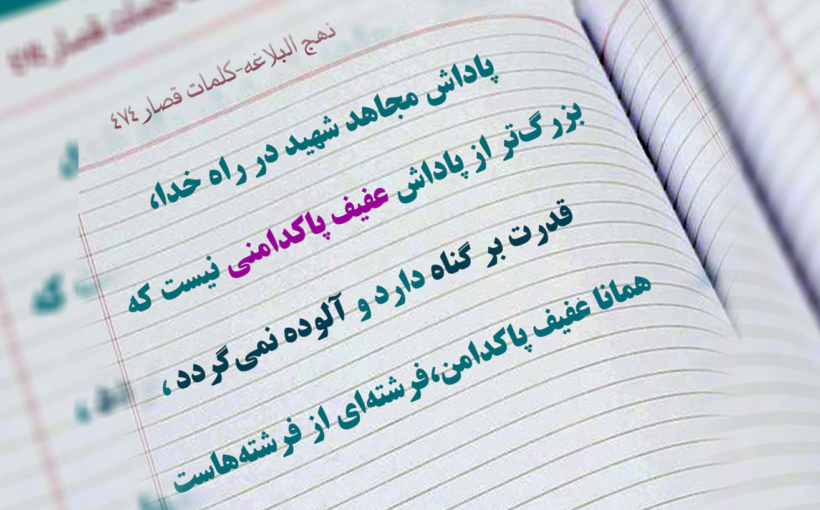 نهج البلاغه-کلمات قصار ٤٧٤
پاداش مجاهد شهید در راه خدا،
بزرگ‌تر از پاداش عفیف پاکدامنی نیست که
قدرت بر گناه دارد و آلوده نمی‌گردد،
همانا عفیف پاکدامن،فرشته‌ای از فرشته‌هاست